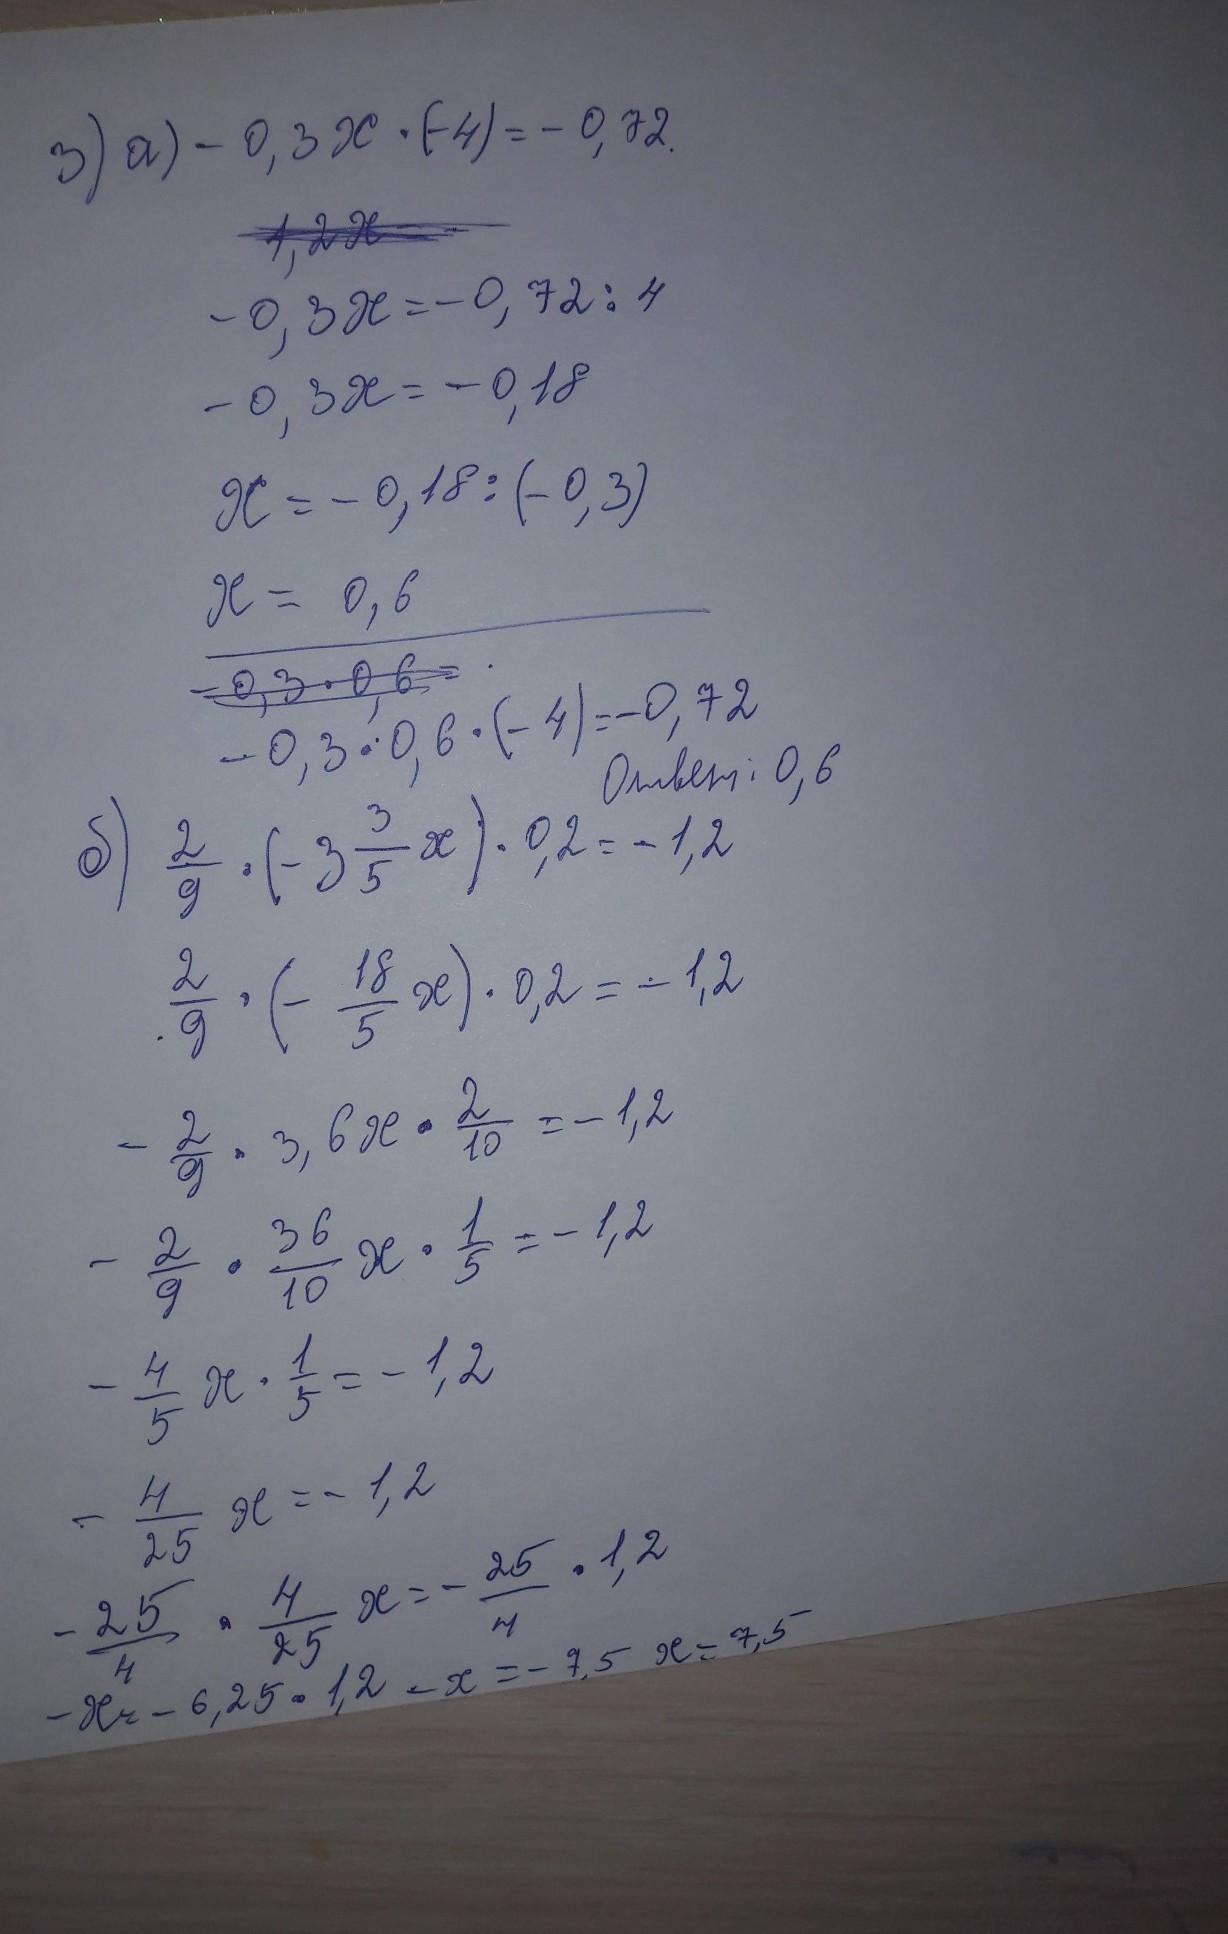 3) а) - 0,3x · (-4) = - 0,72.
1,2x -
- 0,3x = - 0,72 : 4
- 0,3x = - 0,18
x = - 0,18 : (- 0,3)
x = 0,6
- 0,3 · 0,6 =
- 0,3 · 0,6 · (- 4) = - 0,72
Ответ: 0,6
б) 2/9 · (- 3 3/5 x) · 0,2 = - 1,2
2/9 · (- 18/5 x) · 0,2 = - 1,2
- 2/9 · 3,6x · 2/10 = - 1,2
- 2/9 · 36/10 x · 1/5 = - 1,2
- 4/5 x · 1/5 = - 1,2
- 4/25 x = - 1,2
- 25/4 · 4/25 x = - 25/4 · 1,2
- x = - 6,25 · 1,2 - x = - 7,5 x = 7,5